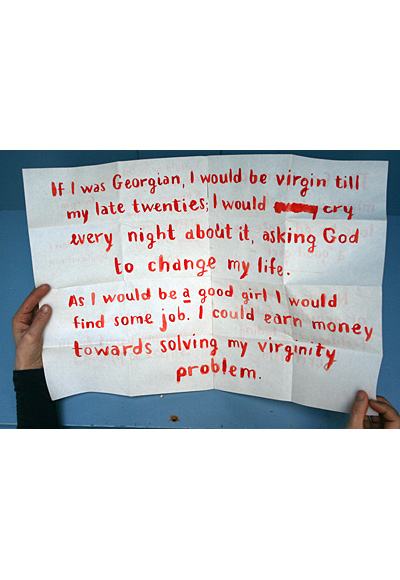 If I was Georgian, I would be virgin till
my late twenties; I would cry
every night about it, asking God
to change my life.
As I would be a good girl I would
find some job. I could earn money
towards solving my virginity
problem.